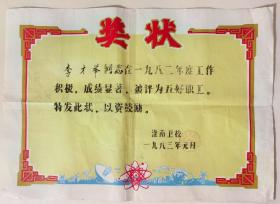 奖状
李才举同志在一九八二年度工作
积极，成绩显著，被评为五好职工。
特发此状，以资鼓励。
淮南卫校
一九八三年元月